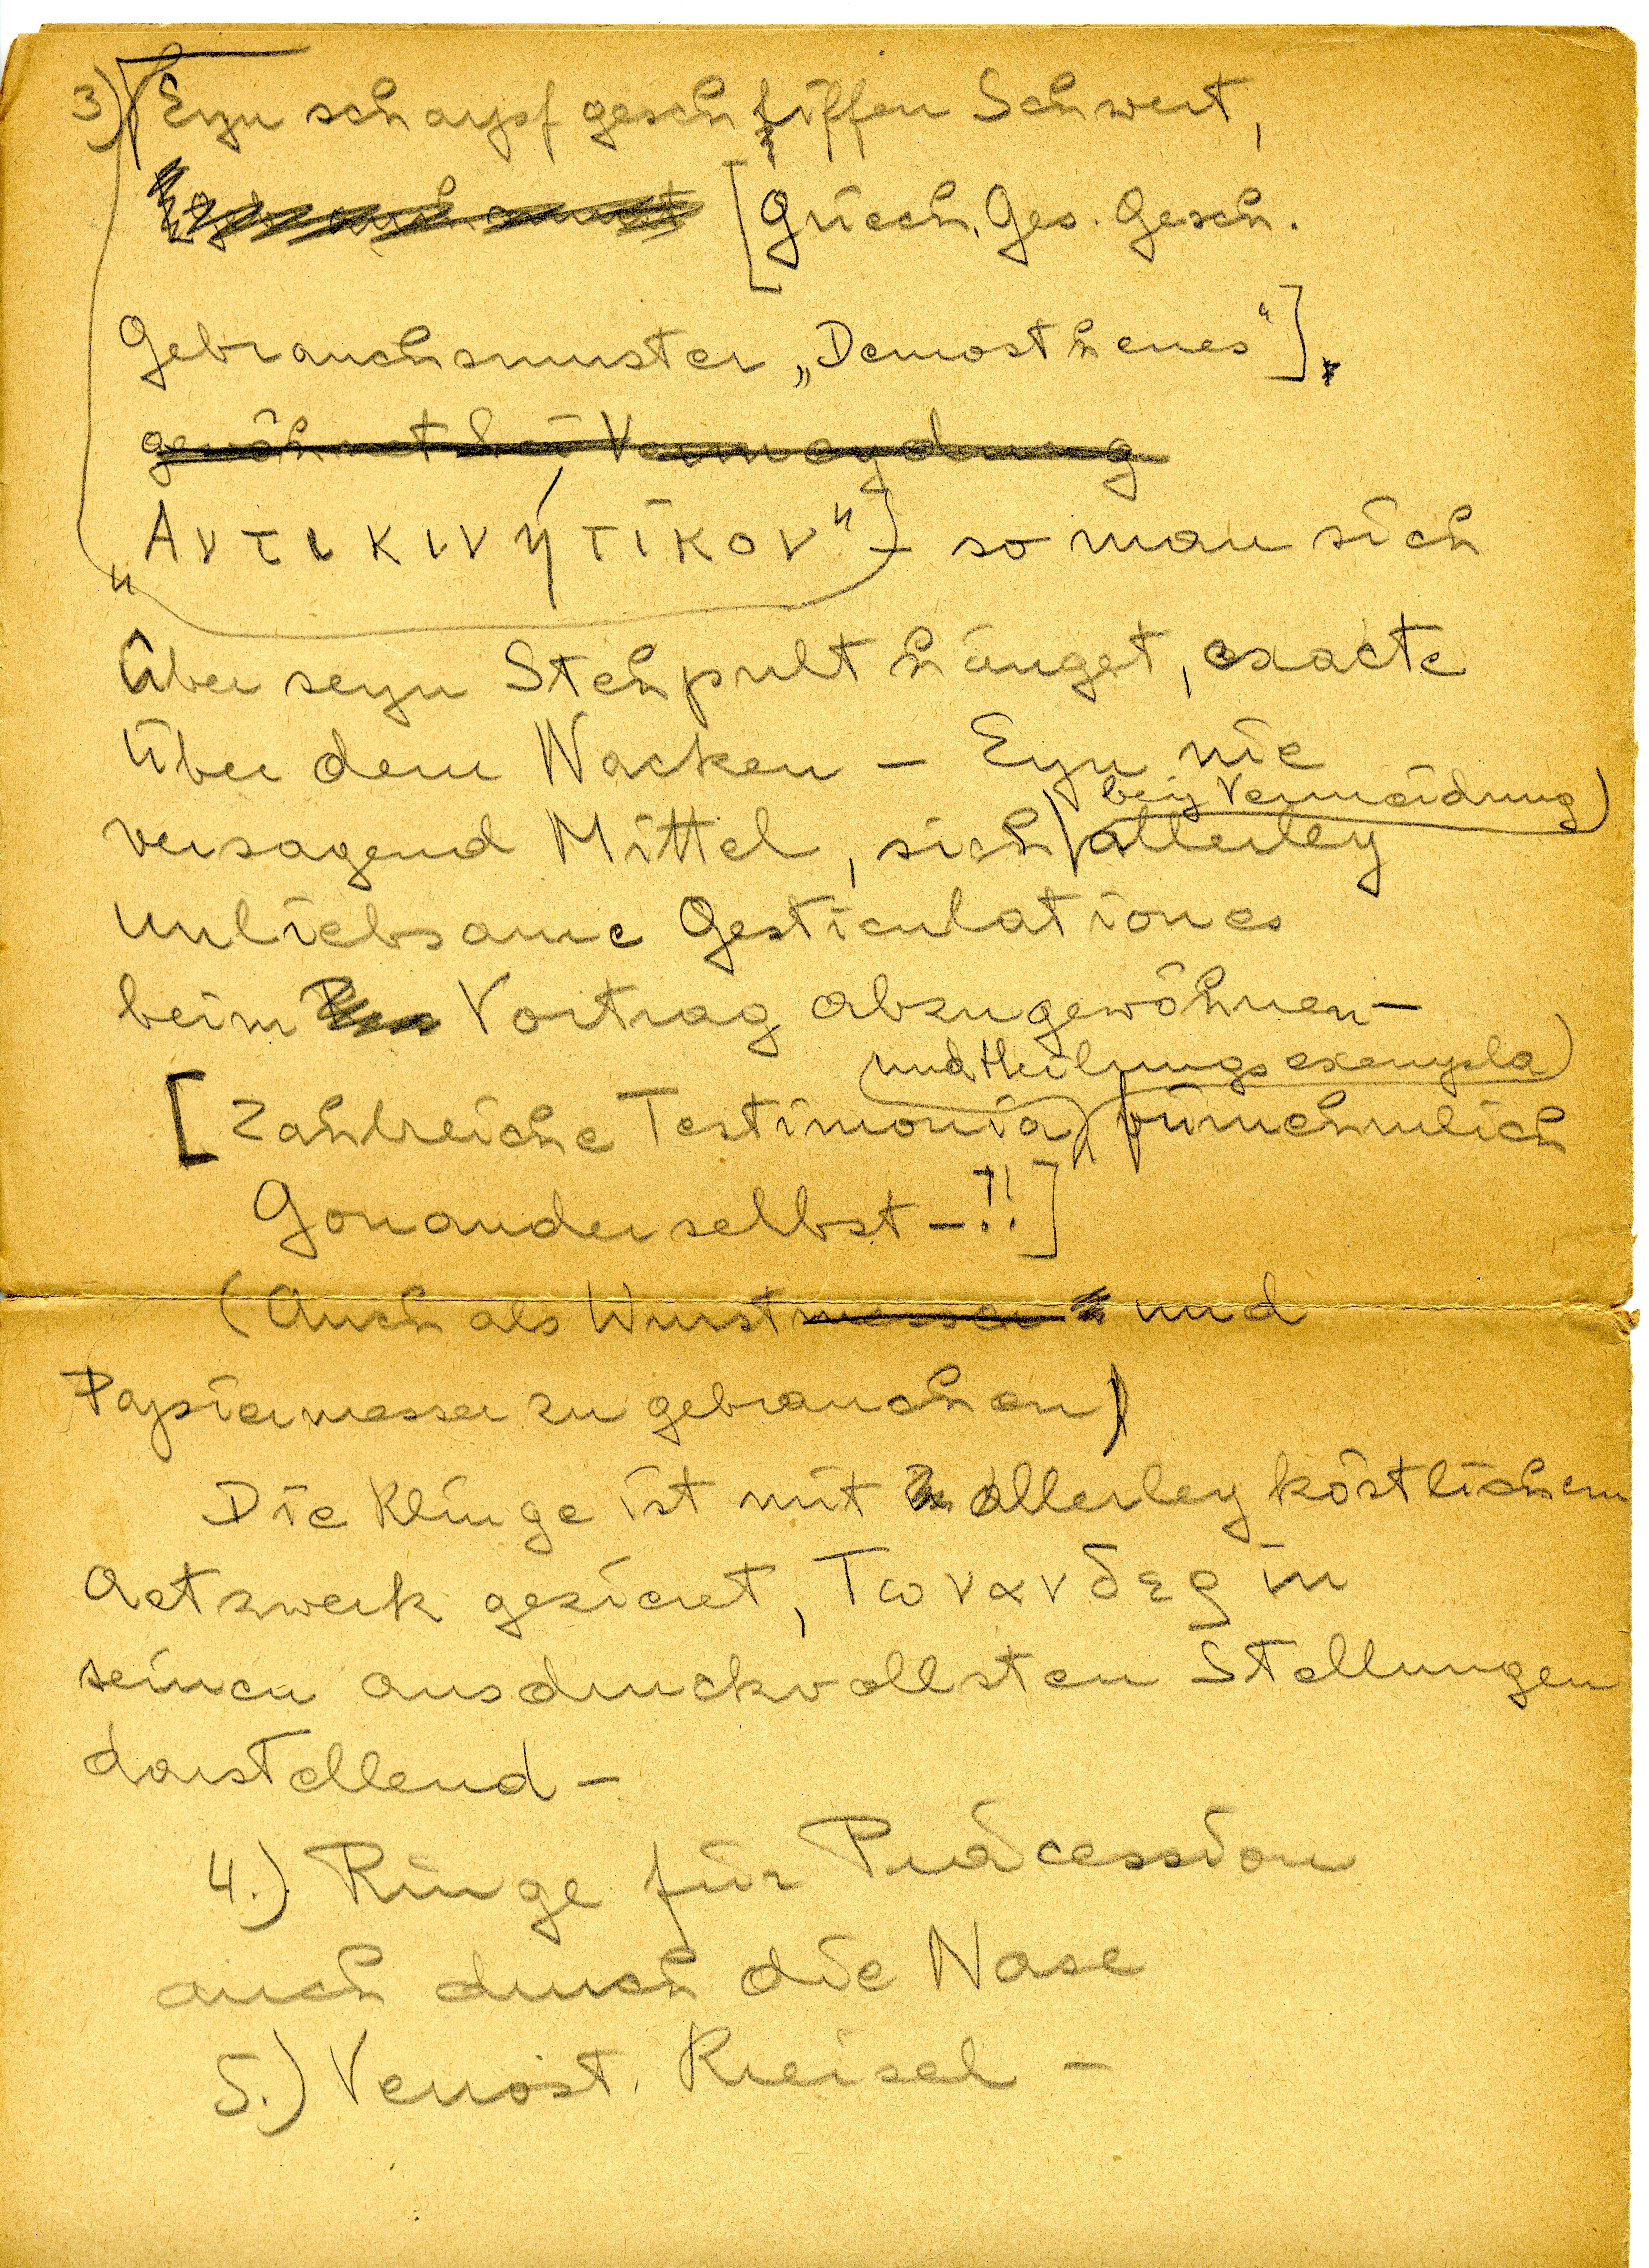 3) Eyn scharpf geschliffen Schwert,
[Griech. Ges. Gesch.
Gebrauchsmuster „Demosthenes“]
gewöhnet bei Vermeydung
„Αντικινήτικον“ – so man sich
über seyn Stehpult hänget, exacte
über dem Nacken – Eyn nie
bey Vermeidung
versagend Mittel, sich allerley
unliebsame Gesticulationes
beim Vortrag abzugewöhnen –
und Heilungsexempla
[Zahlreiche Testimonia, fürnehmlich
Gonander selbst – !!]
(Auch als Wurstmesser und
Papiermesser zu gebrauchen)
Die Klinge ist mit allerley köstlichem
Aetzwerk gezieret, Γωνανδερ in
seinen ausdruckvollsten Stellungen
darstellend –
4.) Ringe für Präcession
auch durch die Nase
5.) Verrost. Kreisel –